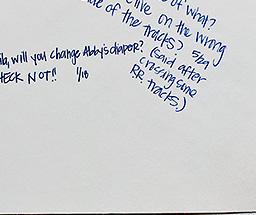 of what?
live on the wrong
side of the tracks? 5/29
(said after
crossing some
R.R. tracks.)
will you change Abby's diaper?
HECK NOT!! 1/18